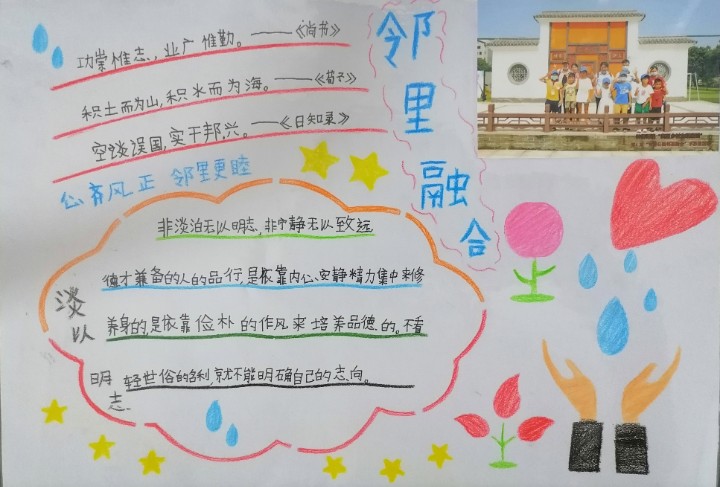 功崇惟志，业广惟勤。——《尚书》
积土而为山，积水而为海。——《荀子》
空谈误国，实干邦兴。——《日知录》
邻里融合
心齐风正 邻里更睦
非淡泊无以明志，非宁静无以致远
德才兼备的人的品行，是依靠内心安静精力集中来修
养身的，是依靠俭朴的作风来培养品德的。不看
轻世俗的名利，就不能明确自己的志向。
淡以
明志